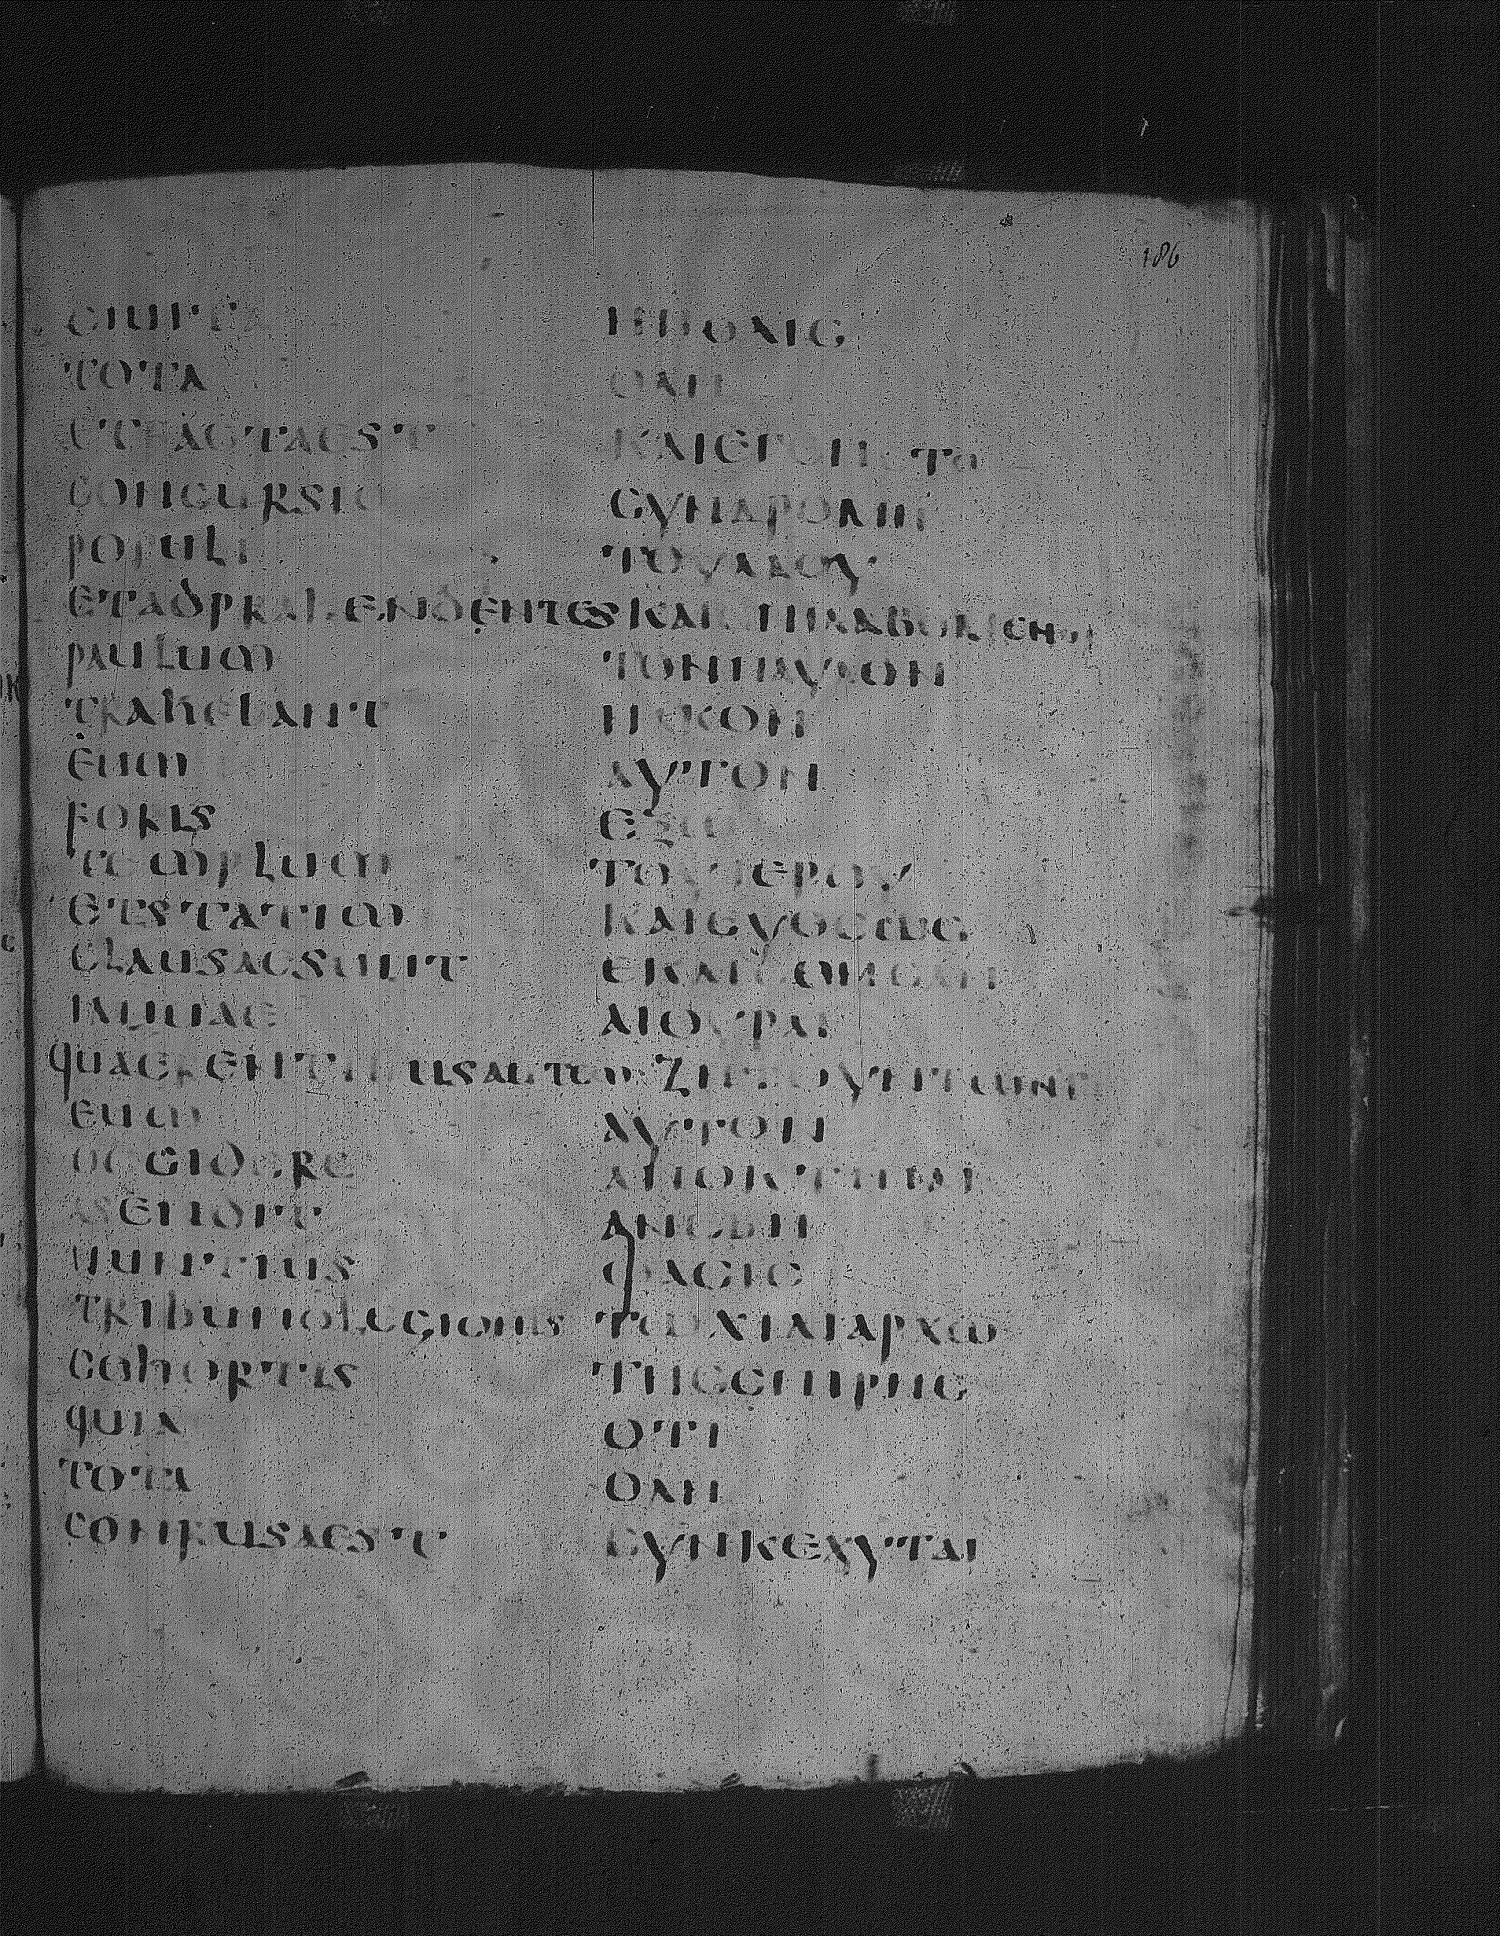 186
ciuitas
tota
et facta est
concursio
populi
et adprahendentes
paulum
trahebant
eum
foris
templum
et statim
clausae sunt
ianuae
quaerentibus autem
eum
occidere
asendit
nuntius
tribuno legionis
cohortis
quia
tota
confusa est
Η ΠΟΛΙC
ΟΛΗ
ΚΑΙ ΕΓΕΝΕΤΟ
CΥΝΔΡΟΜΗ
ΤΟΥ ΛΑΟΥ
ΚΑΙ ΕΠΙΛΑΒΟΜΕΝΟΙ
ΤΟΝ ΠΑΥΛΟΝ
ΕΙΛΚΟΝ
ΑΥΤΟΝ
ΕΞΩ
ΤΟΥ ΙΕΡΟΥ
ΚΑΙ ΕΥΘΕΩC
ΕΚΛΙCΘΗCΑΝ
ΑΙ ΘΥΡΑΙ
ΖΗΤΟΥΝΤΩΝ ΔΕ
ΑΥΤΟΝ
ΑΠΟΚΤΙΝΑΙ
ΑΝΕΒΗ
ΦΑCΙC
ΤΩ ΧΙΛΙΑΡΧΩ
ΤΗC CΠΙΡΗC
ΟΤΙ
ΟΛΗ
CΥΝΚΕΧΥΤΑΙ